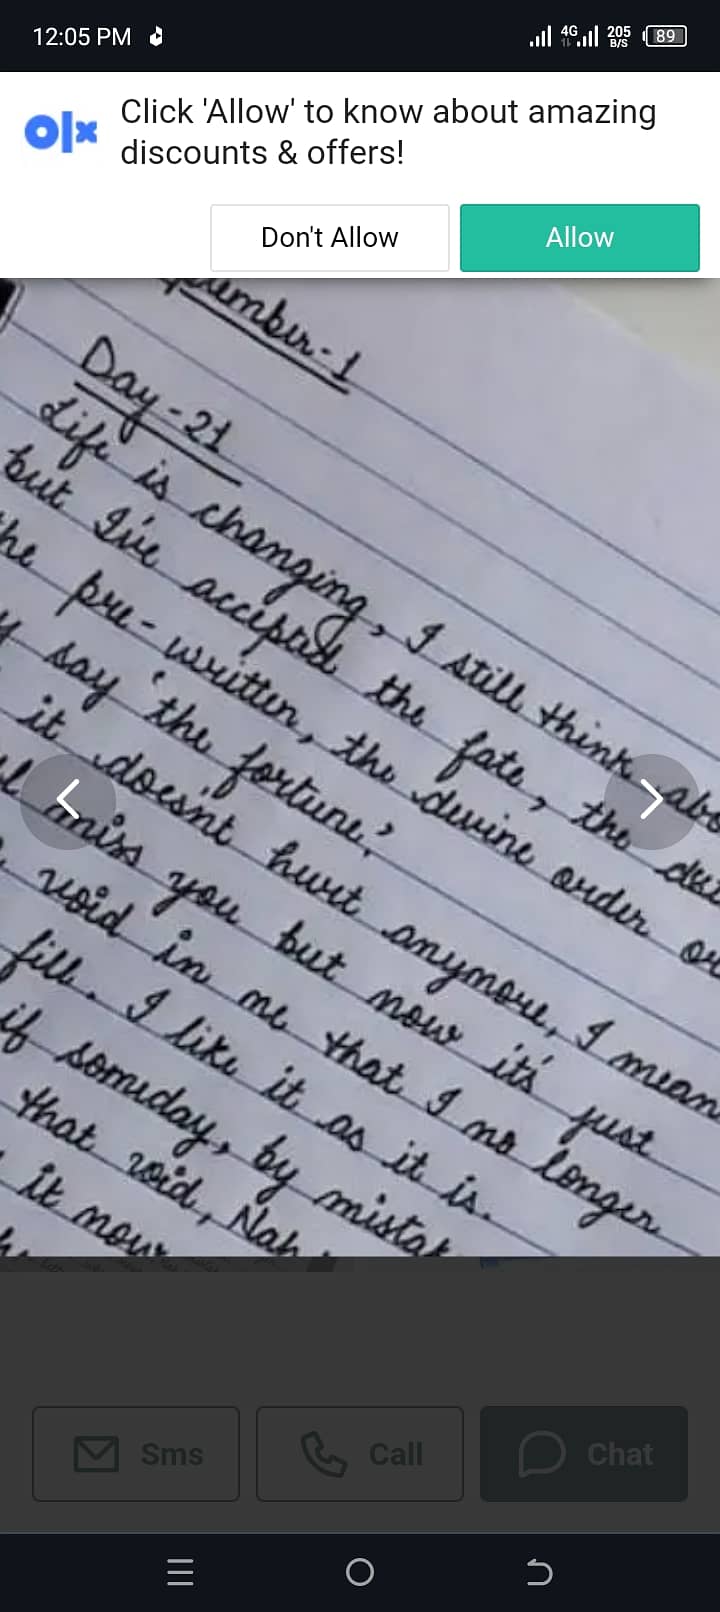 12:05 PM
4G
205
B/S
89
olx
Click 'Allow' to know about amazing
discounts & offers!
Don't Allow
Allow
ember-1
Day-21
Life is changing, I still think abo
but I've accepted the fate, the
he pre-written, the devine order or
say 'the fortune.'
it doesn't hurt anymore, I mean
miss you but now it's just
void in me that I no longer
fill. I like it as it is.
if someday, by mistak
that void, Nah
it now
Sms
Call
Chat